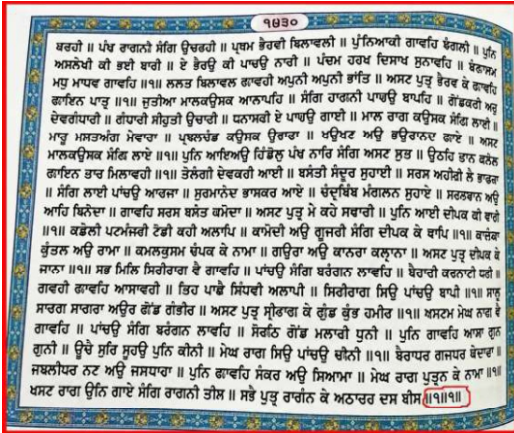 ੧੪੩੦
ਬਰਹੀ ॥ ਪੰਖ ਰਾਗਨੀ ਸੰਗਿ ਉਚਰਹੀ ॥ ਪ੍ਰਥਮ ਭੈਰਵੀ ਬਿਲਾਵਲੀ ॥ ਪੁੰਨਿਆਕੀ ਗਾਵਹਿ ਬੰਗਲੀ ॥ ਪੁਨਿ
ਅਸਲੇਖੀ ਕੀ ਭਈ ਬਾਰੀ ॥ ਏ ਭੈਰਉ ਕੀ ਪਾਚਉ ਨਾਰੀ ॥ ਪੰਚਮ ਹਰਖ ਦਿਸਾਖ ਸੁਨਾਵਹਿ ॥ ਬੰਗਾਲਮ
ਮਧੁ ਮਾਧਵ ਗਾਵਹਿ ॥੧॥ ਲਲਤ ਬਿਲਾਵਲ ਗਾਵਹੀ ਅਪੁਨੀ ਅਪੁਨੀ ਭਾਂਤਿ ॥ ਅਸਟ ਪੁਤ੍ਰ ਭੈਰਵ ਕੇ ਗਾਵਹਿ
ਗਾਇਨ ਪਾਤ੍ਰ ॥੧॥ ਦੁਤੀਆ ਮਾਲਕਉਸਕ ਆਲਾਪਹਿ ॥ ਸੰਗਿ ਰਾਗਨੀ ਪਾਚਉ ਥਾਪਹਿ ॥ ਗੋਂਡਕਰੀ ਅਰੁ
ਦੇਵਗੰਧਾਰੀ ॥ ਗੰਧਾਰੀ ਸੀਹੁਤੀ ਉਚਾਰੀ ॥ ਧਨਾਸਰੀ ਏ ਪਾਚਉ ਗਾਈ ॥ ਮਾਲ ਰਾਗ ਕਉਸਕ ਸੰਗਿ ਲਾਈ ॥
ਮਾਰੂ ਮਸਤਅੰਗ ਮੇਵਾਰਾ ॥ ਪ੍ਰਬਲਚੰਡ ਕਉਸਕ ਉਭਾਰਾ ॥ ਖਉਖਟ ਅਉ ਭਉਰਾਨਦ ਗਾਏ ॥ ਅਸਟ
ਮਾਲਕਉਸਕ ਸੰਗਿ ਲਾਏ ॥੧॥ ਪੁਨਿ ਆਇਅਉ ਹਿੰਡੋਲੁ ਪੰਚ ਨਾਰਿ ਸੰਗਿ ਅਸਟ ਸੁਤ ॥ ਉਠਹਿ ਤਾਨ ਕਲੋਲ
ਗਾਇਨ ਤਾਰ ਮਿਲਾਵਹੀ ॥੧॥ ਤੇਲੰਗੀ ਦੇਵਕਰੀ ਆਈ ॥ ਬਸੰਤੀ ਸੰਦੂਰ ਸੁਹਾਈ ॥ ਸਰਸ ਅਹੀਰੀ ਲੈ ਭਾਰਜਾ
॥ ਸੰਗਿ ਲਾਈ ਪਾਂਚਉ ਆਰਜਾ ॥ ਸੁਰਮਾਨੰਦ ਭਾਸਕਰ ਆਏ ॥ ਚੰਦ੍ਰਬਿੰਬ ਮੰਗਲਨ ਸੁਹਾਏ ॥ ਸਰਸਬਾਨ ਅਉ
ਆਹਿ ਬਿਨੋਦਾ ॥ ਗਾਵਹਿ ਸਰਸ ਬਸੰਤ ਕਮੋਦਾ ॥ ਅਸਟ ਪੁਤ੍ਰ ਮੈ ਕਹੇ ਸਵਾਰੀ ॥ ਪੁਨਿ ਆਈ ਦੀਪਕ ਕੀ ਬਾਰੀ
॥੧॥ ਕਛੇਲੀ ਪਟਮੰਜਰੀ ਟੋਡੀ ਕਹੀ ਅਲਾਪਿ ॥ ਕਾਮੋਦੀ ਅਉ ਗੂਜਰੀ ਸੰਗਿ ਦੀਪਕ ਕੇ ਥਾਪਿ ॥੧॥ ਕਾਲੰਕਾ
ਕੁੰਤਲ ਅਉ ਰਾਮਾ ॥ ਕਮਲਕੁਸਮ ਚੰਪਕ ਕੇ ਨਾਮਾ ॥ ਗਉਰਾ ਅਉ ਕਾਨਰਾ ਕਲ੍ਯਾਨਾ ॥ ਅਸਟ ਪੁਤ੍ਰ ਦੀਪਕ ਕੇ
ਜਾਨਾ ॥੧॥ ਸਭ ਮਿਲਿ ਸਿਰੀਰਾਗ ਵੈ ਗਾਵਹਿ ॥ ਪਾਂਚਉ ਸੰਗਿ ਬਰੰਗਨ ਲਾਵਹਿ ॥ ਬੈਰਾਰੀ ਕਰਨਾਟੀ ਧਰੀ ॥
ਗਵਰੀ ਗਾਵਹਿ ਆਸਾਵਰੀ ॥ ਤਿਹ ਪਾਛੈ ਸਿੰਧਵੀ ਅਲਾਪੀ ॥ ਸਿਰੀਰਾਗ ਸਿਉ ਪਾਂਚਉ ਥਾਪੀ ॥੧॥ ਸਾਲੂ
ਸਾਰਗ ਸਾਗਰਾ ਅਉਰ ਗੋਂਡ ਗੰਭੀਰ ॥ ਅਸਟ ਪੁਤ੍ਰ ਸ੍ਰੀਰਾਗ ਕੇ ਗੁੰਡ ਕੁੰਭ ਹਮੀਰ ॥੧॥ ਖਸਟਮ ਮੇਘ ਰਾਗ ਵੈ
ਗਾਵਹਿ ॥ ਪਾਂਚਉ ਸੰਗਿ ਬਰੰਗਨ ਲਾਵਹਿ ॥ ਸੋਰਠਿ ਗੋਂਡ ਮਲਾਰੀ ਧੁਨੀ ॥ ਪੁਨਿ ਗਾਵਹਿ ਆਸਾ ਗੁਨ
ਗੁਨੀ ॥ ਊਚੈ ਸੁਰਿ ਸੂਹਉ ਪੁਨਿ ਕੀਨੀ ॥ ਮੇਘ ਰਾਗ ਸਿਉ ਪਾਂਚਉ ਚੀਨੀ ॥੧॥ ਬੈਰਾਧਰ ਗਜਧਰ ਕੇਦਾਰਾ ॥
ਜਬਲੀਧਰ ਨਟ ਅਉ ਜਲਧਾਰਾ ॥ ਪੁਨਿ ਗਾਵਹਿ ਸੰਕਰ ਅਉ ਸਿਆਮਾ ॥ ਮੇਘ ਰਾਗ ਪੁਤ੍ਰਨ ਕੇ ਨਾਮਾ ॥੧॥
ਖਸਟ ਰਾਗ ਉਨਿ ਗਾਏ ਸੰਗਿ ਰਾਗਨੀ ਤੀਸ ॥ ਸਭੈ ਪੁਤ੍ਰ ਰਾਗੰਨ ਕੇ ਅਠਾਰਹ ਦਸ ਬੀਸ ॥੧॥੧॥